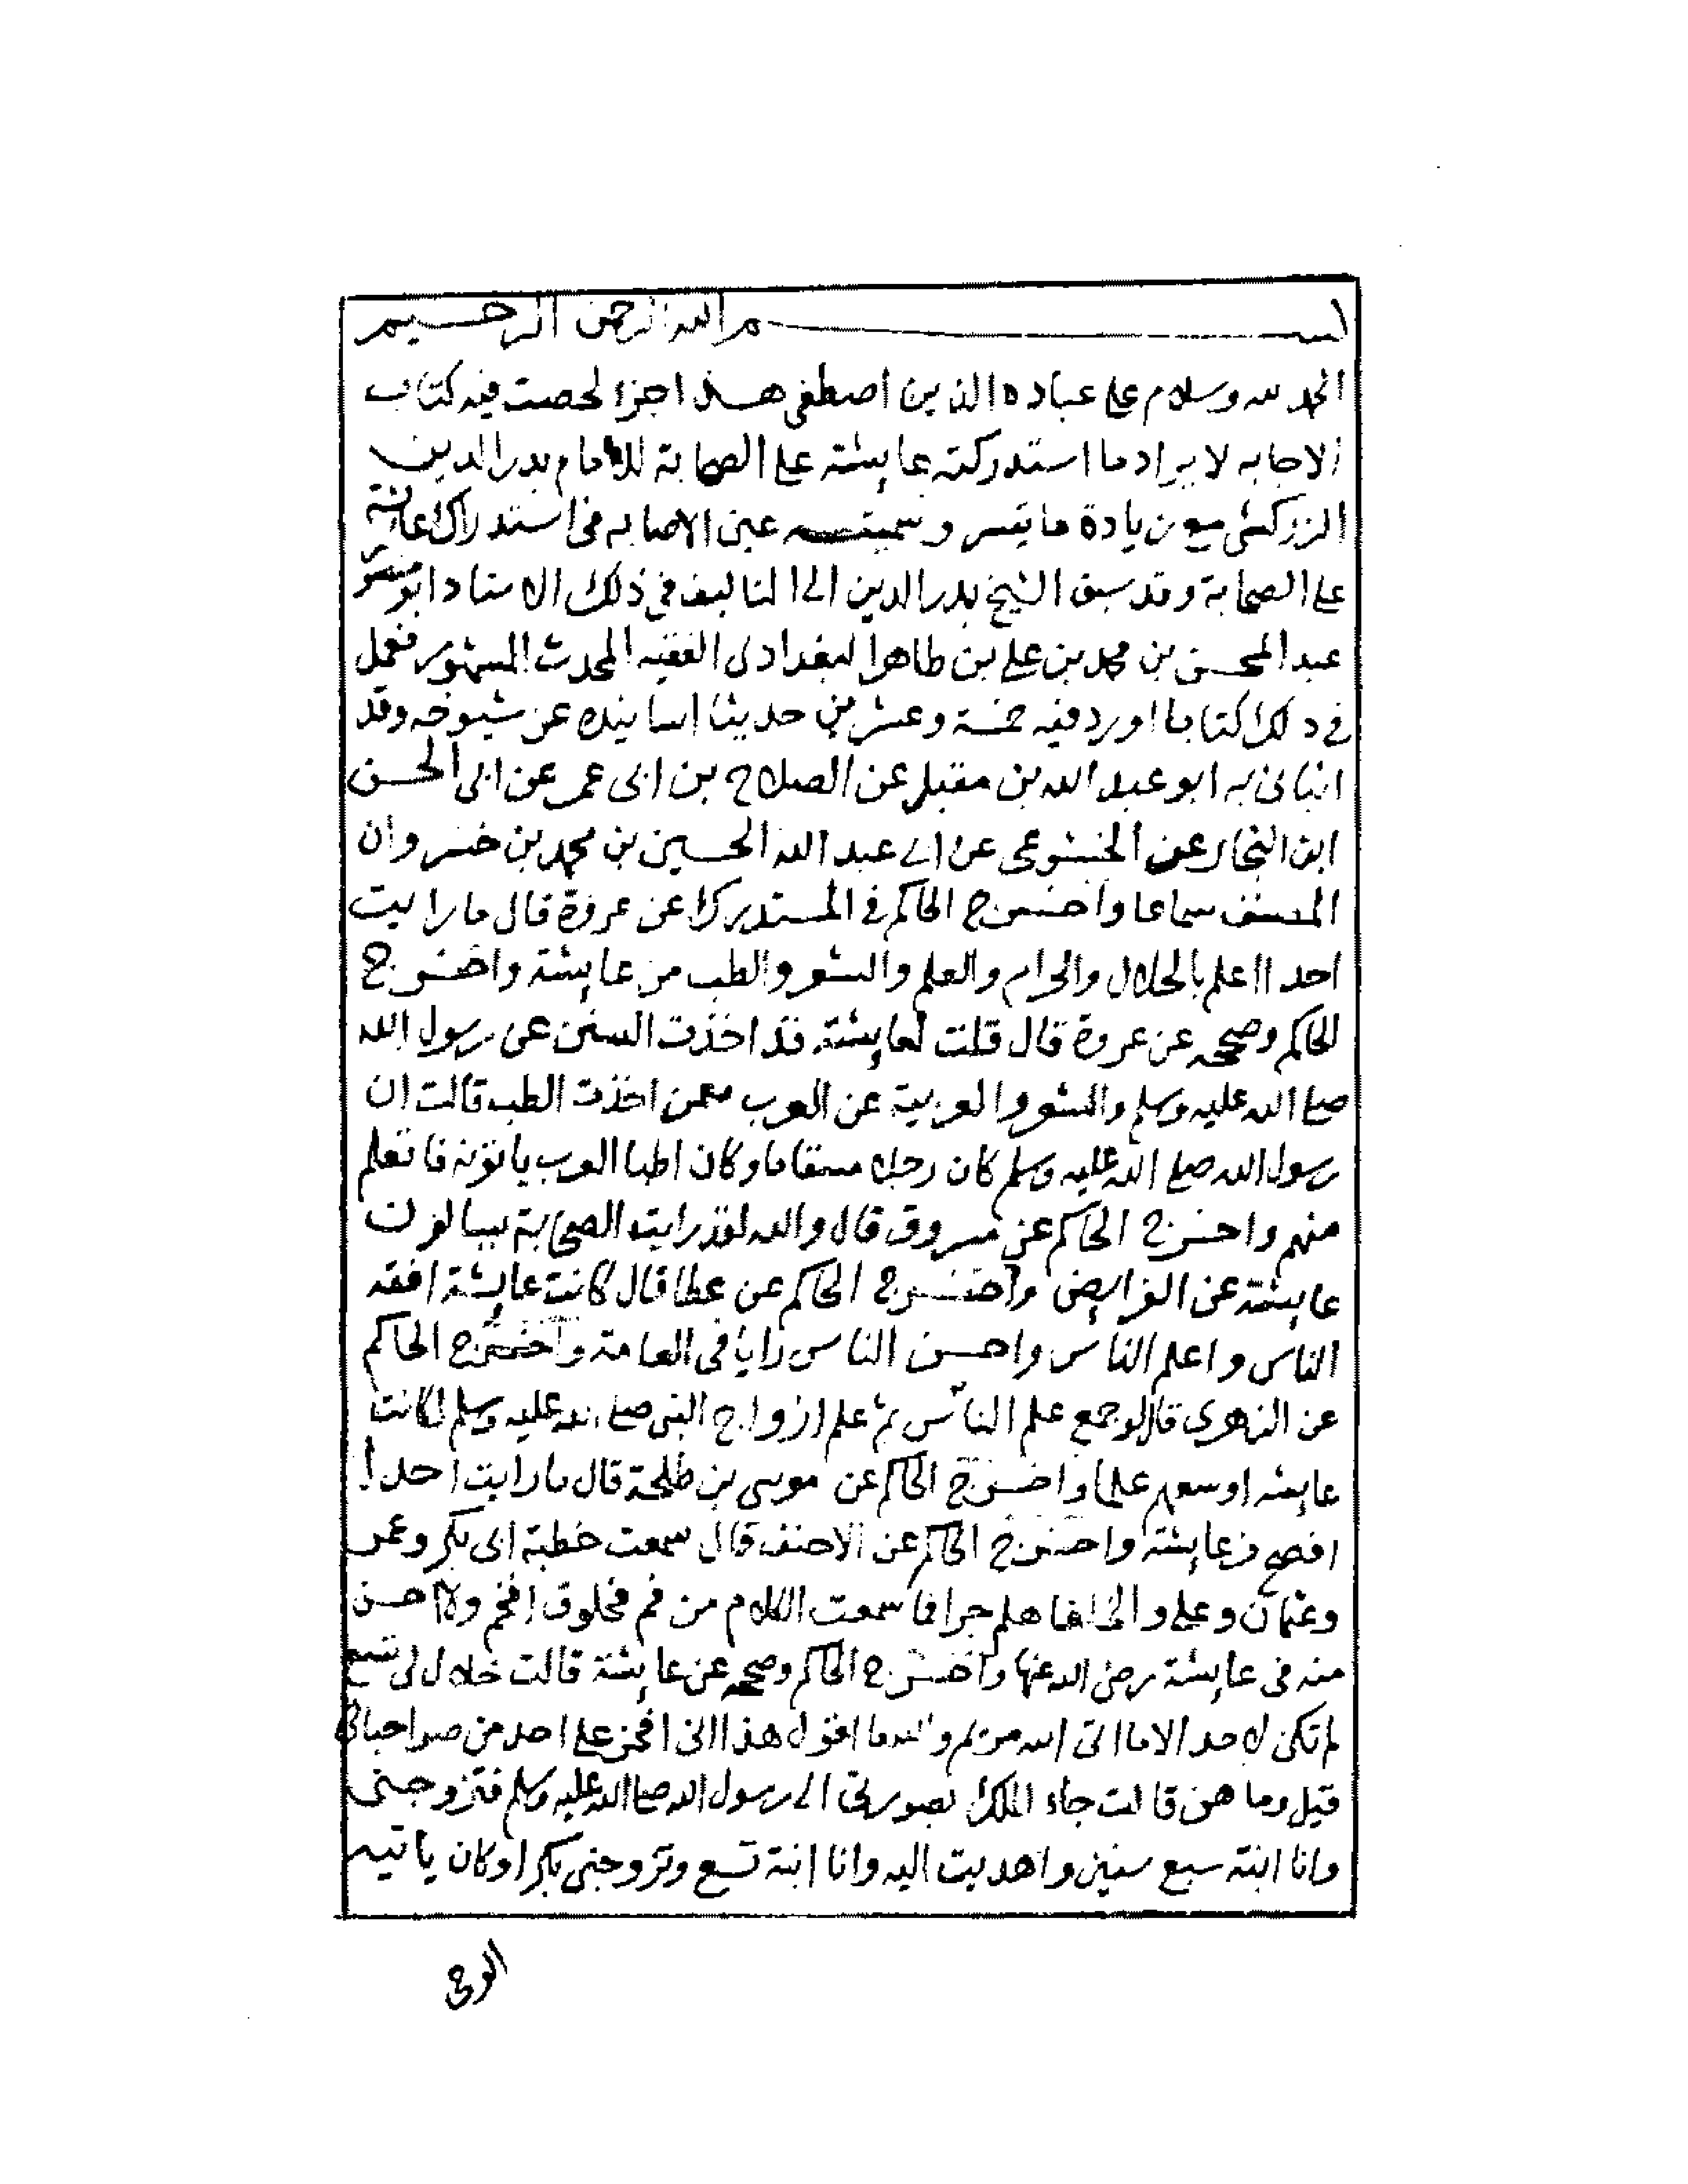 بسم الله الرحمن الرحيم
الحمد لله وسلام على عباده الذين اصطفى هذا جزء لخصت فيه كتاب
الاجابه لايراد ما استدركته عايشة على الصحابة للامام بدر الدين
الزركشي مع زيادة ما تيسر وسميته عين الاصابه في استدراك عائشة
على الصحابة وقد سبق الشيخ بدر الدين الى التاليف في ذلك الاستاد ابو منصور
عبد المحسن بن محمد بن علي بن طاهر البغدادى الفقيه المحدث المشهور فعمل
في ذلك كتابا اورد فيه خمسة وعشرين حديثا اسانيده عن شيوخه وقد
انبانى به ابو عبد الله بن مقبل عن الصلاح بن ابى عمر عن ابى الحسن
ابن النجار عن الخشوعى عن ابي عبد الله الحسين بن محمد بن خسروان
المصنف سماعا واخرج الحاكم في المستدرك عن عروة قال ما رايت
احدا اعلم بالحلال والحرام والعلم والشعر والطب من عايشة واخرج
الحاكم وصححه عن عروة قال قلت لعايشة قد اخذت السنن عن رسول الله
صلى الله عليه وسلم والشعر والعربية عن العرب فعمن اخذت الطب قالت ان
رسول الله صلى الله عليه وسلم كان رجلا مسقاما وكان اطبا العرب ياتونه فاتعلم
منهم واخرج الحاكم عن مسروق قال والله لقد رايت الصحابة يسالون
عايشة عن الفرايض واخرج الحاكم عن عطا قال كانت عايشة افقه
الناس واعلم الناس واحسن الناس رايا في العامة واخرج الحاكم
عن الزهرى قال لو جمع علم الناس ثم علم ازواج النبي صلى الله عليه وسلم لكانت
عايشه اوسعهم علما واخرج الحاكم عن موسى بن طلحة قال ما رايت احدا
افصح من عايشة واخرج الحاكم عن الاحنف قال سمعت خطبة ابى بكر وعمر
وعثمان وعلي والخلفا هلم جرا فما سمعت الكلام من فم مخلوق افخم ولا احسن
منه في عايشة رضى الله عنها واخرج الحاكم وصححه عن عايشة قالت خلال لى تسع
لم تكن لاحد الا ما اتى الله مريم والله ما اقول هذا انى افخر على احد من صواحباتى
قيل وما هن قالت جاء الملك بصورتي الى رسول الله صلى الله عليه وسلم فتزوجنى
وانا ابنة سبع سنين واهديت اليه وانا ابنة تسع وتزوجني بكرا وكان ياتيه
الوحى